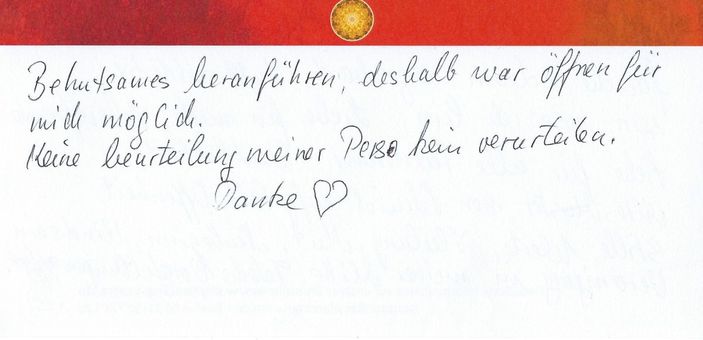 Behutsames heranführen, deshalb war öffnen für
mich möglich.
Keine beurteilung meiner Perso kein verurteilen.
Danke ♡